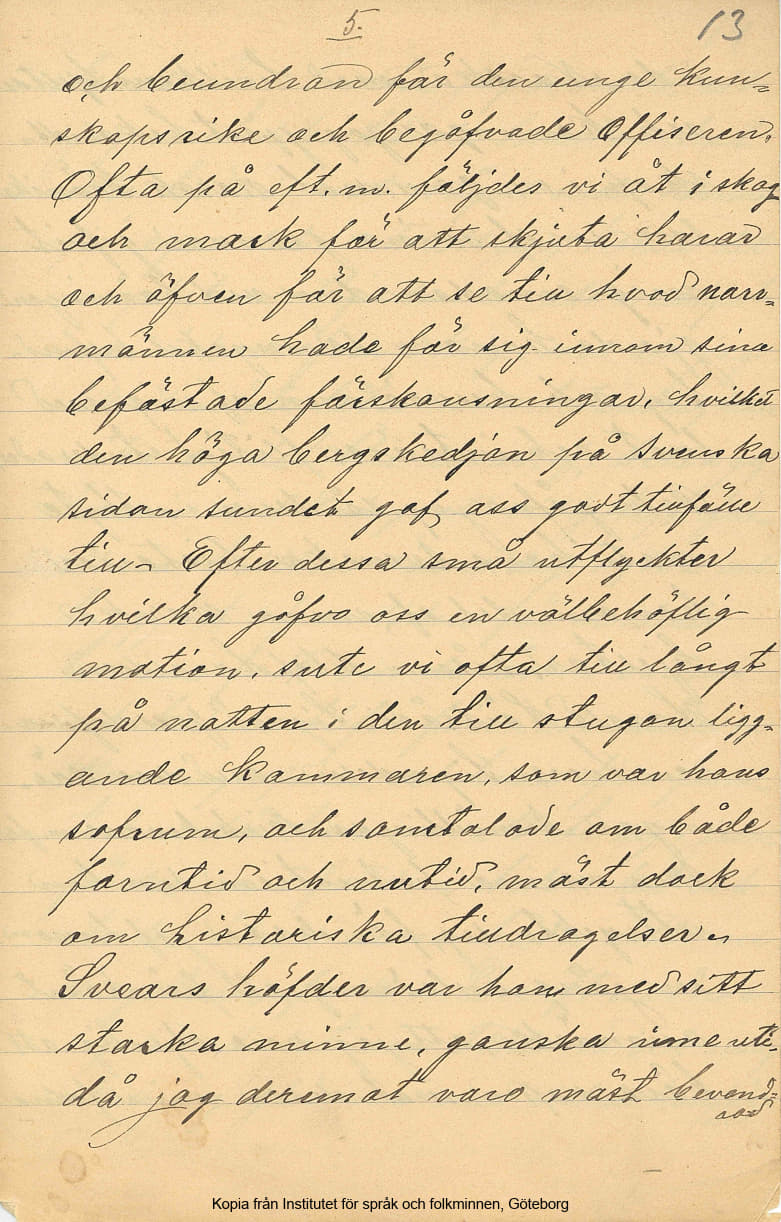 5.
13
och beundran för den unge kun=
skapsrike och begåfvade Offiseren.
Ofta på eft. m. följdes vi åt i skog
och mark för att skjuta harar
och öfven för att se till hvad norr=
männen hade för sig inrom sina
befästade förskansningar, hvilket
den höga bergskedjan på Svenska
sidan sundet gaf oss godt tillfälle
till. Efter dessa små utflyckter
hvilka gåfvo oss en välbehöflig
motion, sute vi ofta till långt
på natten i den till stugan ligg=
ande kammaren, som var hans
sofrum, och samtalade om både
forntid och nutid, mäst dock
om historiska tilldragelser.
Svears höfder var han med sitt
starka minne, ganska inne uti,
då jag deremot varo mäst bevand=
rad
Kopia från Institutet för språk och folkminnen, Göteborg